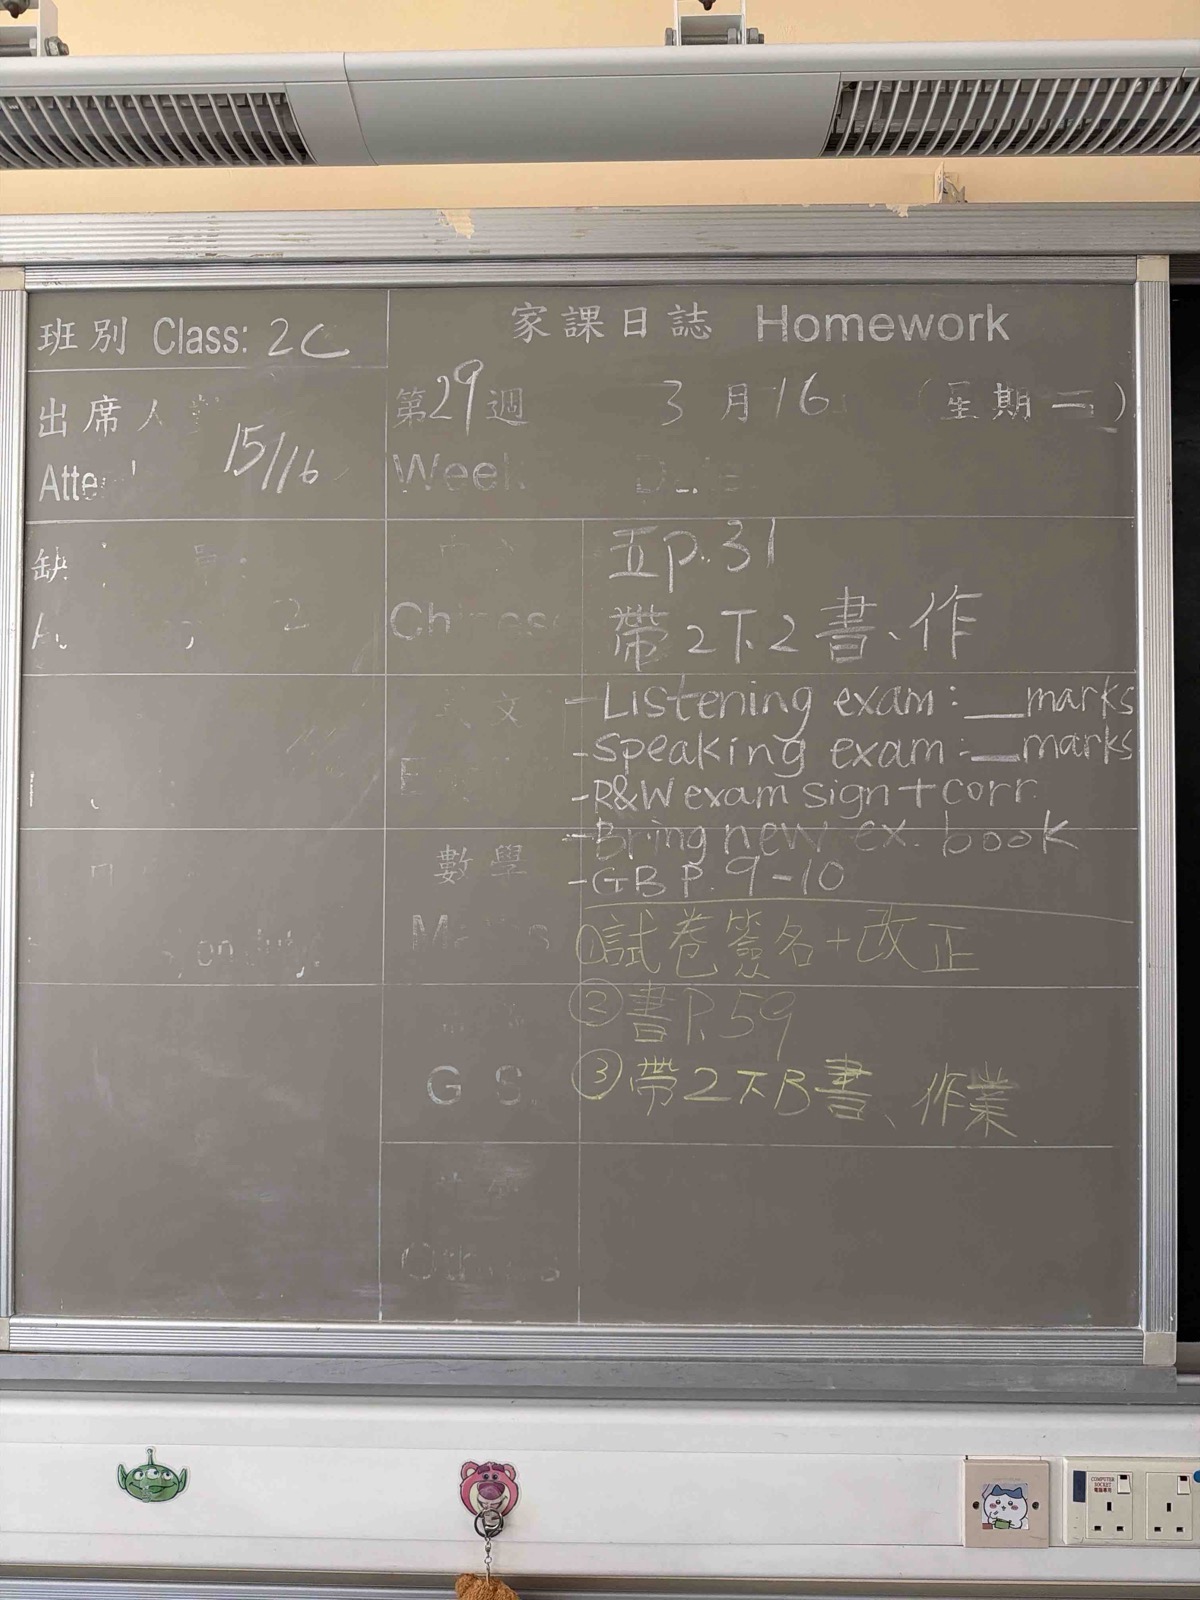 班別 Class: 2C
家課日誌 Homework
出席人
15/16
第29週 3月16 (星期二)
Week
缺
2
五p.31
帶2下2書、作
文
-Listening exam: __marks
-Speaking exam: __marks
-R&W exam sign+corr.
-Bring new ex. book
-GB P. 9-10
數學
①試卷簽名+改正
②書P.59
③帶2下B書、作業
G.S.
COMPUTER SOCKET
電腦專用